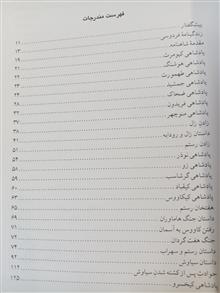 فهرست مندرجات
پیشگفتار
زندگینامهٔ فردوسی
مقدمهٔ شاهنامه ۱۱
پادشاهی کیومرث ۱۳
پادشاهی هوشنگ ۱۹
پادشاهی طهمورث
پادشاهی جمشید
پادشاهی ضحاک
پادشاهی فریدون
پادشاهی منوچهر
زادن زال ۳۷
داستان زال و رودابه
زادن رستم
پادشاهی نوذر ۵۴
پادشاهی زو ۵۸
پادشاهی گرشاسب ۵۹
پادشاهی کیقباد ۶۰
پادشاهی کیکاووس ۶۳
هفتخان رستم ۶۵
داستان جنگ هاماوران ۶۹
رفتن کاووس به آسمان ۷۲
جنگ هفت گردان ۷۴
داستان رستم و سهراب
داستان سیاوش ۹۲
حوادث پس از کشته شدن سیاوش ۱۱۲
پادشاهی کیخسرو ۱۲۵